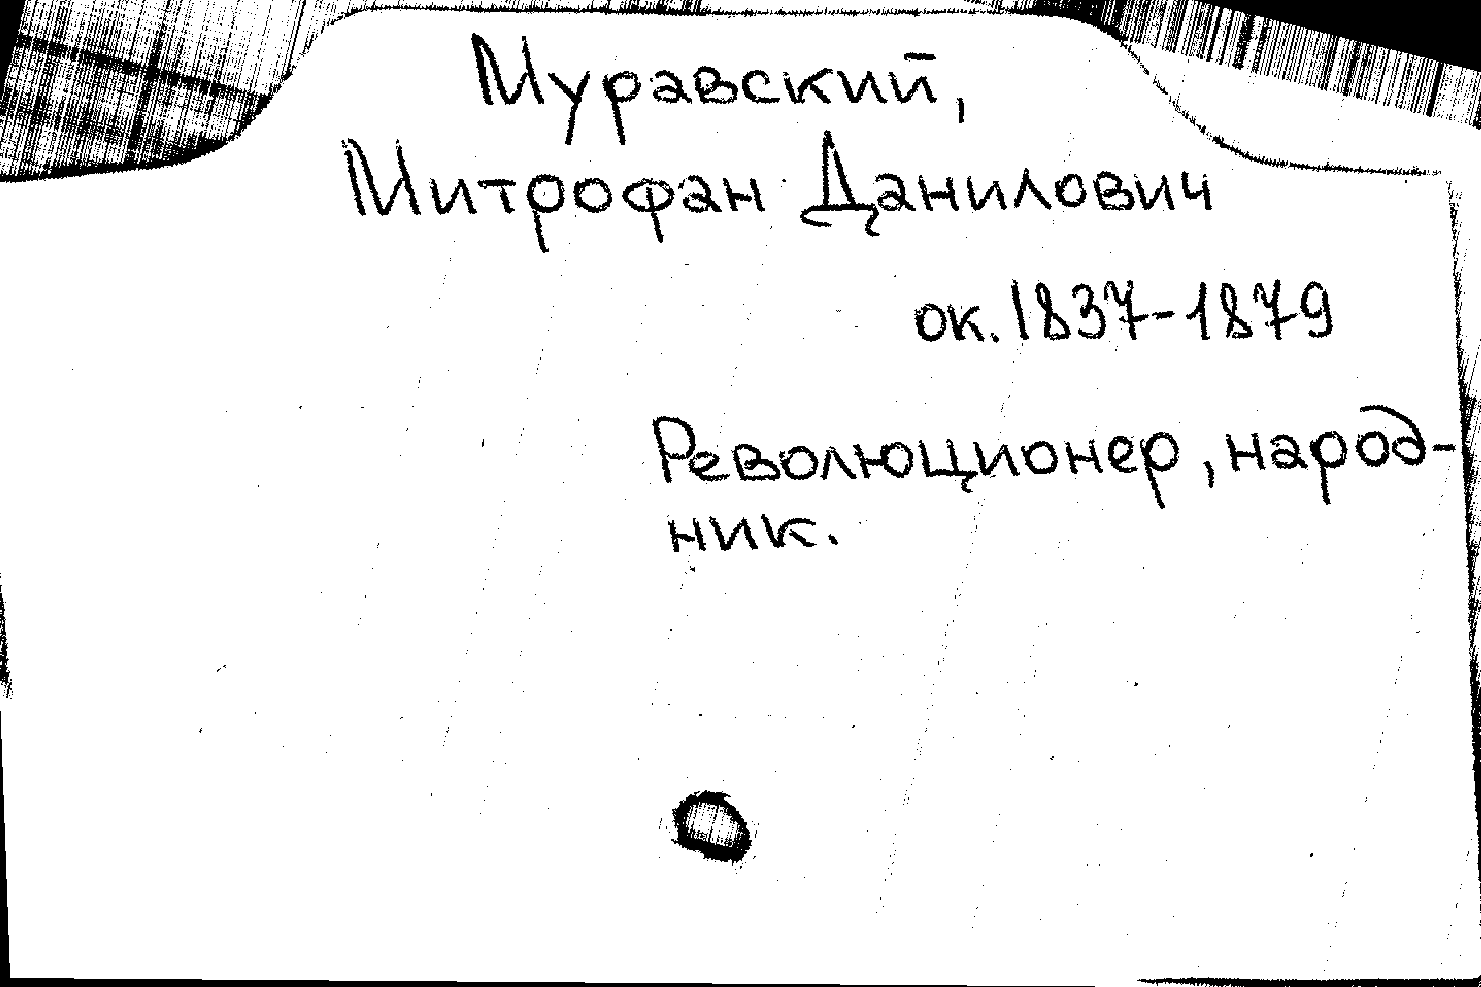 Муравский,
Митрофан Данилович
ок. 1837-1879
Революционер, народ-
ник.